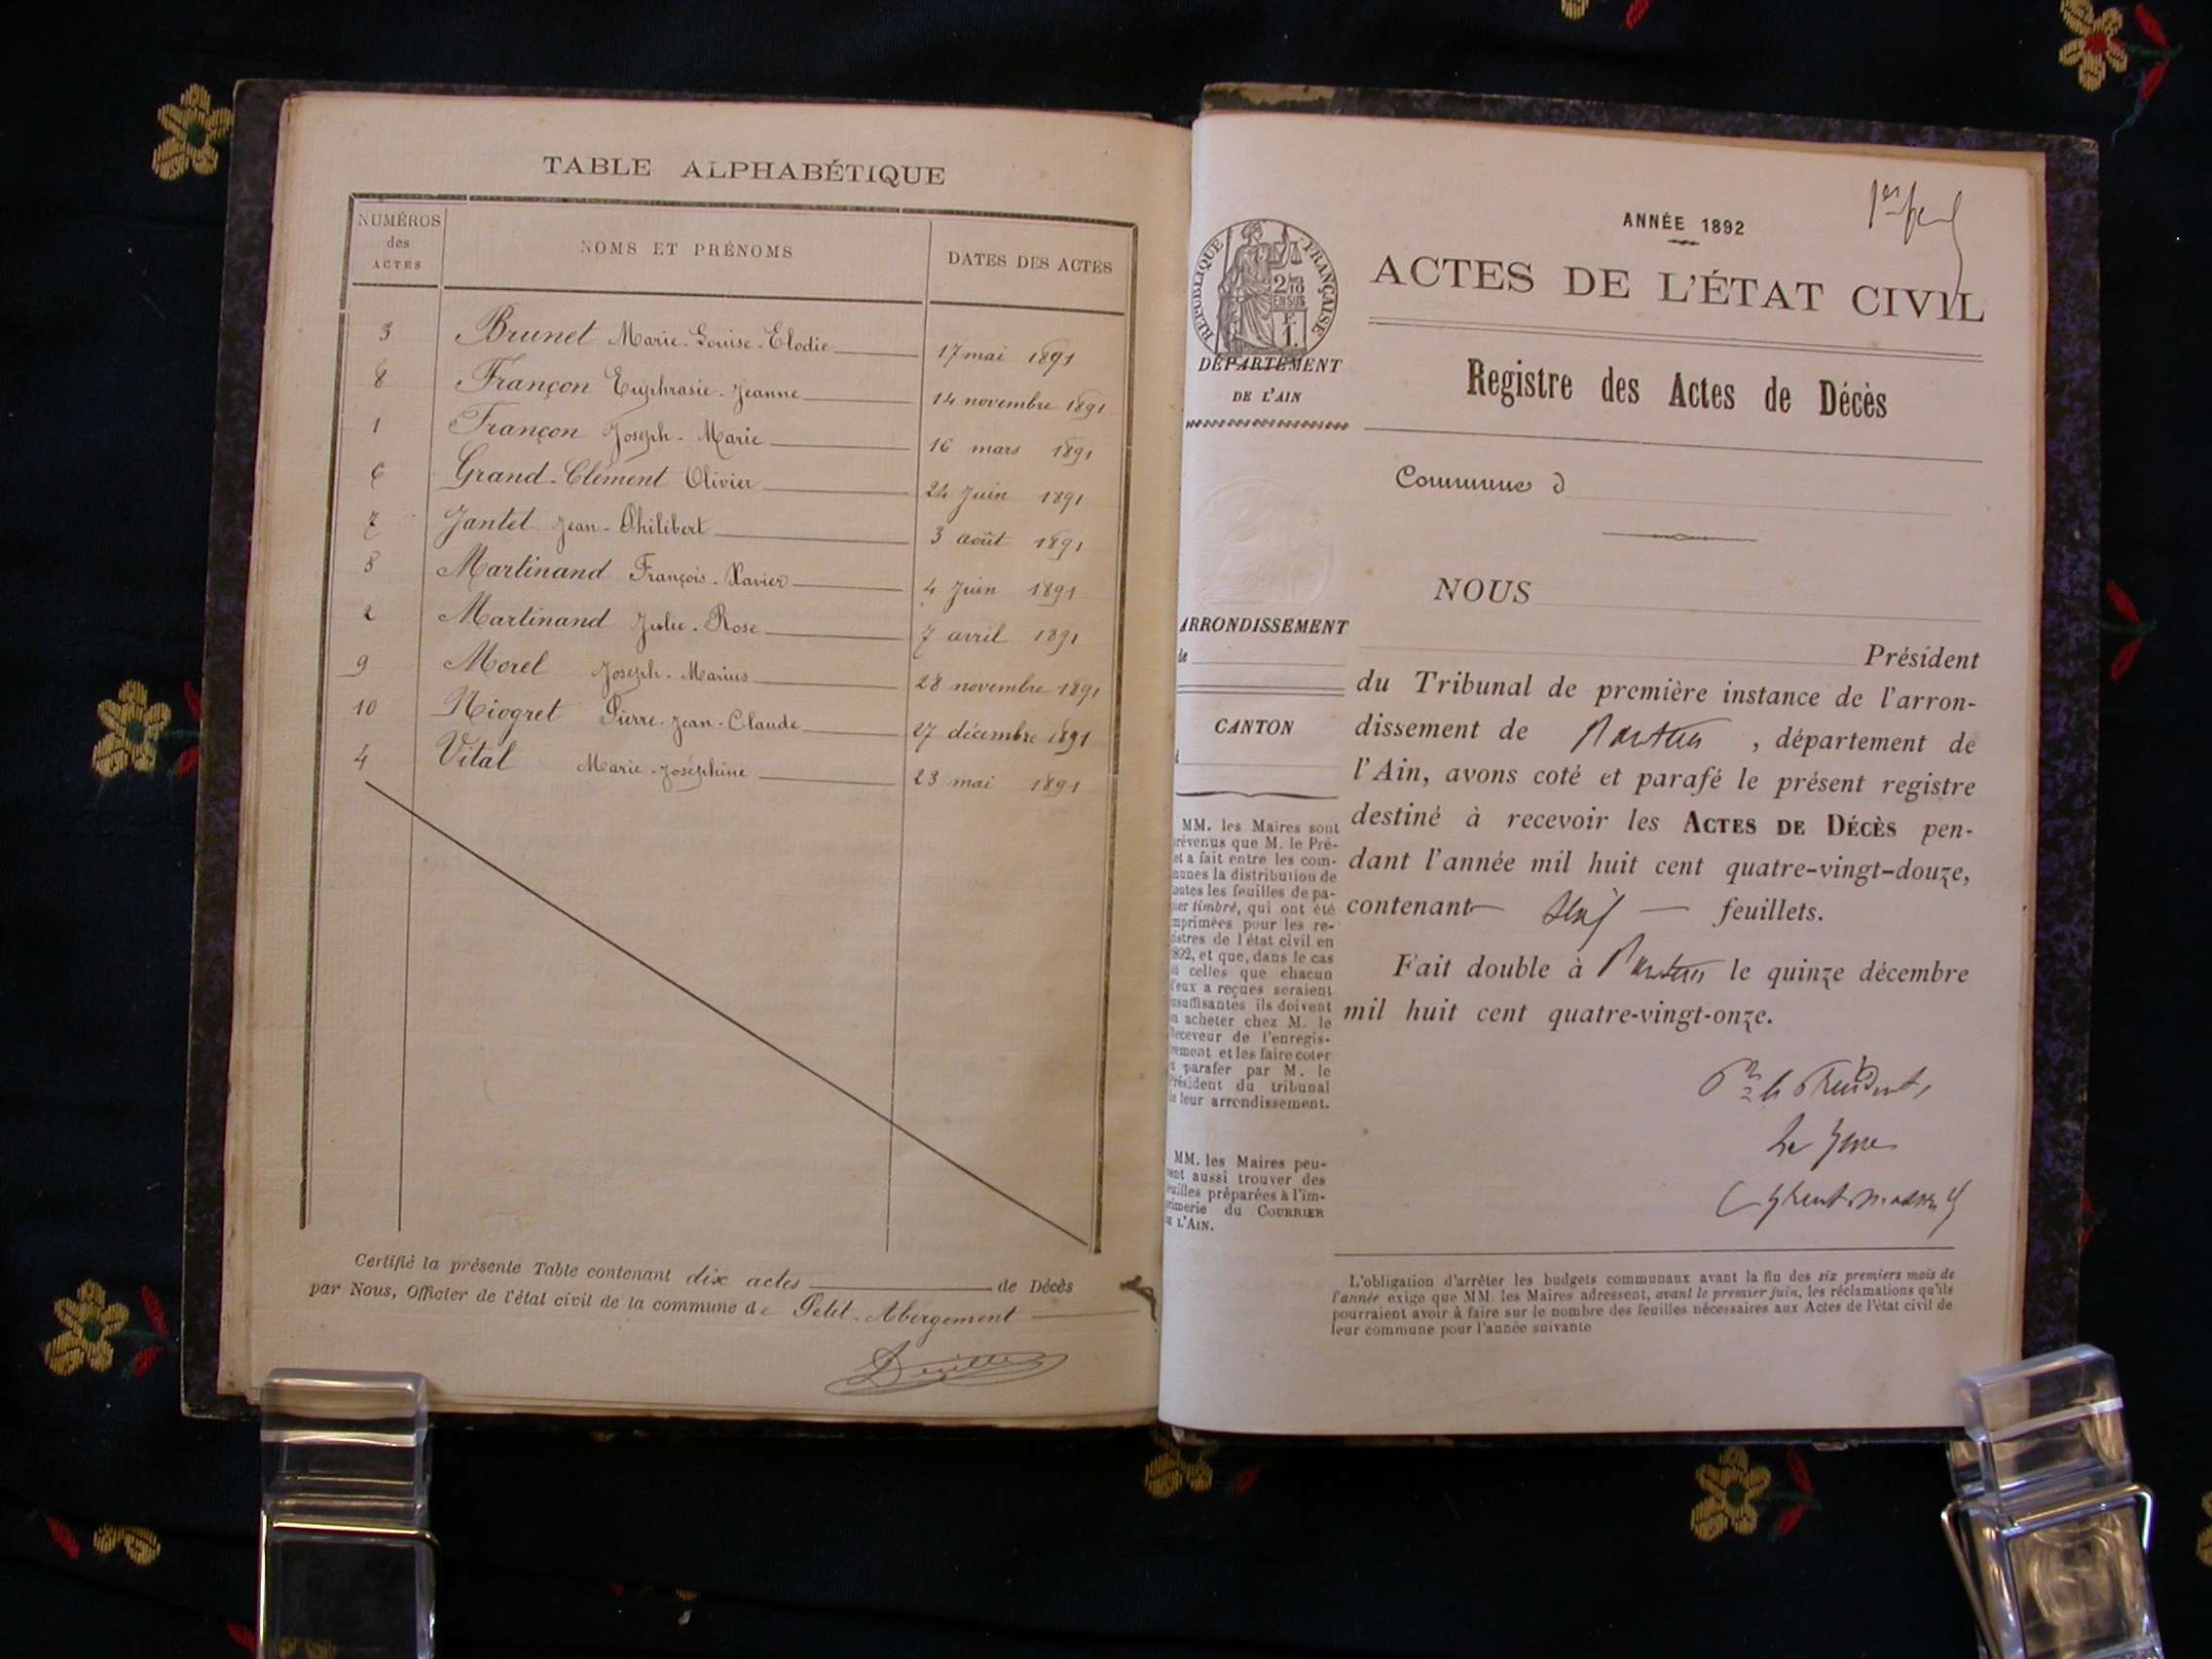 TABLE ALPHABÉTIQUE
NUMÉROS des ACTES
NOMS ET PRÉNOMS
DATES DES ACTES
3 Brunet Marie-Louise-Elodie 17 mai 1891
8 Françon Euphrasie-Jeanne 14 novembre 1891
1 Françon Joseph-Marie 16 mars 1891
6 Grand-Clément Olivier 24 Juin 1891
7 Jantet Jean-Philibert 3 août 1891
5 Martinand François-Xavier 4 Juin 1891
2 Martinand Julie-Rose 7 avril 1891
9 Morel Joseph-Marius 28 novembre 1891
10 Niogret Pierre-Jean-Claude 27 décembre 1891
4 Vital Marie-Joséphine 23 mai 1891
Certifié la présente Table contenant dix actes de Décès
par Nous, Officier de l'état civil de la commune de Petit-Abergement
ANNÉE 1892
ACTES DE L'ÉTAT CIVIL
RÉPUBLIQUE FRANÇAISE
2/10 EN SUS
F. 1.
DÉPARTEMENT
DE L'AIN
Registre des Actes de Décès
Commune d
NOUS
ARRONDISSEMENT
de
Président
du Tribunal de première instance de l'arron-
dissement de Nantua, département de
l'Ain, avons coté et parafé le présent registre
destiné à recevoir les ACTES DE DÉCÈS pen-
dant l'année mil huit cent quatre-vingt-douze,
contenant feuillets.
Fait double à Nantua le quinze décembre
mil huit cent quatre-vingt-onze.
Pr le Président,
Le Juge
CANTON
MM. les Maires sont
prévenus que M. le Pré-
fet a fait entre les com-
munes la distribution de
toutes les feuilles de pa-
pier timbré, qui ont été
imprimées pour les re-
gistres de l'état civil en
1892, et que, dans le cas
où celles que chacun
d'eux a reçues seraient
insuffisantes ils doivent
en acheter chez M. le
Receveur de l'enregis-
trement et les faire coter
et parafer par M. le
Président du tribunal
de leur arrondissement.
MM. les Maires peu-
vent aussi trouver des
feuilles préparées à l'im-
primerie du COURRIER
DE L'AIN.
L'obligation d'arrêter les budgets communaux avant la fin des six premiers mois de
l'année exige que MM. les Maires adressent, avant le premier juin, les réclamations qu'ils
pourraient avoir à faire sur le nombre des feuilles nécessaires aux Actes de l'état civil de
leur commune pour l'année suivante